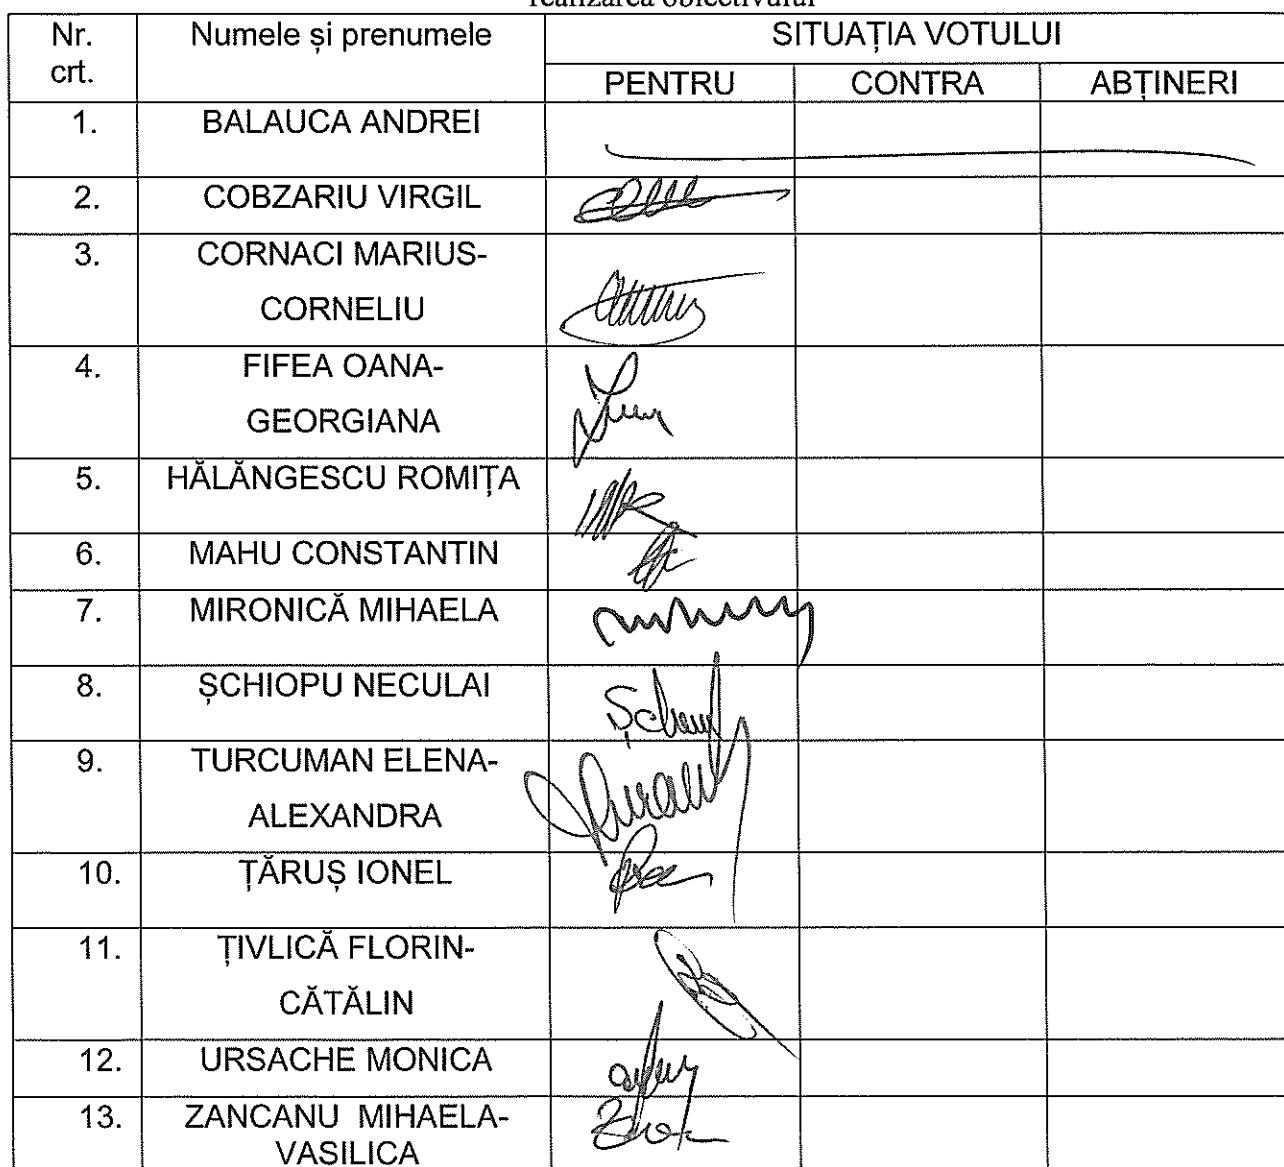 realizarea obiectivului
Nr.
crt.
Numele și prenumele
SITUAȚIA VOTULUI
PENTRU
CONTRA
ABȚINERI
1.
BALAUCA ANDREI
2.
COBZARIU VIRGIL
3.
CORNACI MARIUS-
CORNELIU
4.
FIFEA OANA-
GEORGIANA
5.
HĂLĂNGESCU ROMIȚA
6.
MAHU CONSTANTIN
7.
MIRONICĂ MIHAELA
8.
ȘCHIOPU NECULAI
9.
TURCUMAN ELENA-
ALEXANDRA
10.
ȚĂRUȘ IONEL
11.
ȚIVLICĂ FLORIN-
CĂTĂLIN
12.
URSACHE MONICA
13.
ZANCANU MIHAELA-
VASILICA